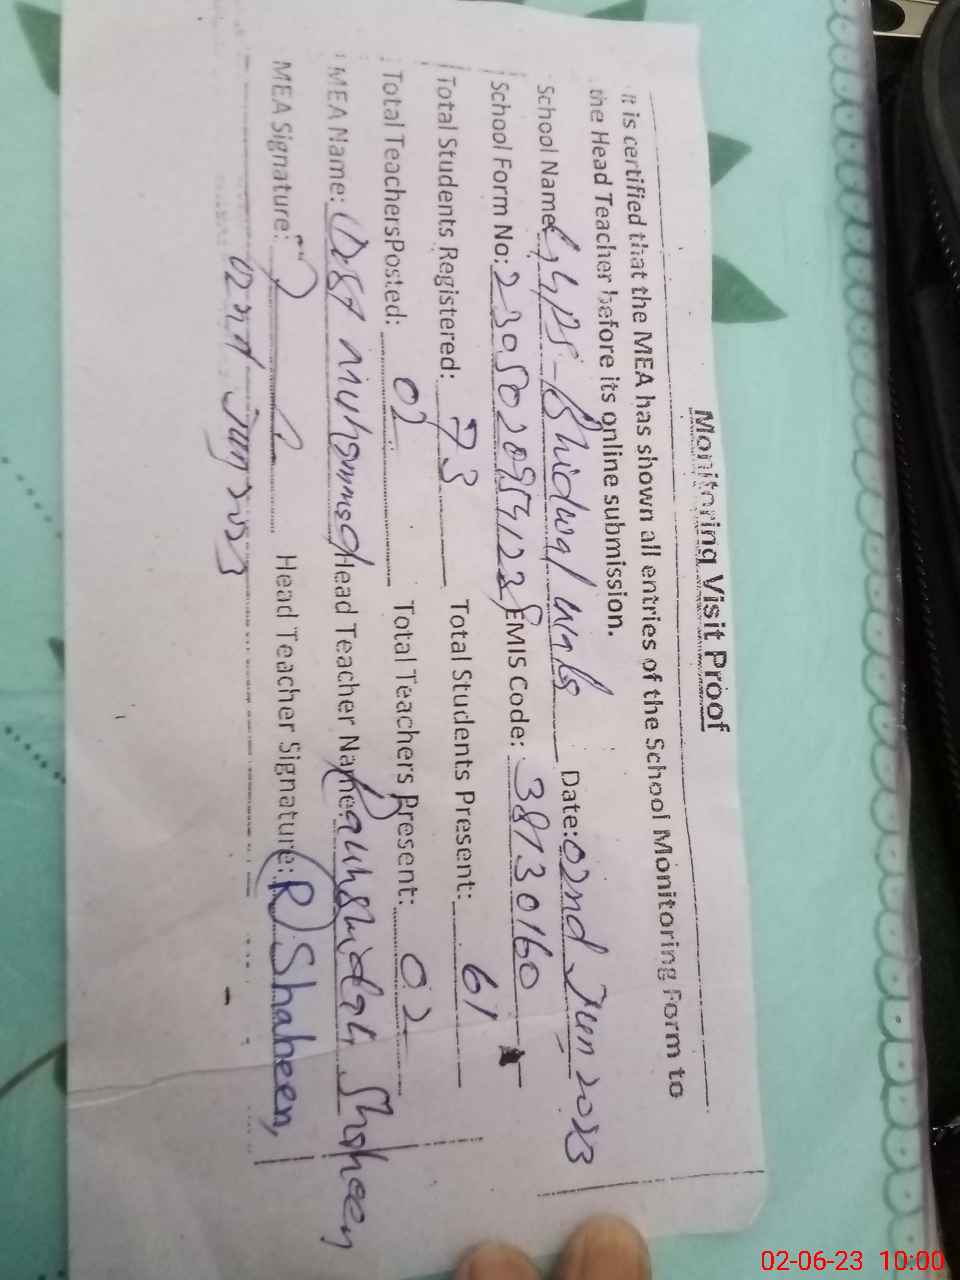 Monitoring Visit Proof
It is certified that the MEA has shown all entries of the School Monitoring Form to
the Head Teacher before its online submission.
School Name: GGPS- Bhidwal Date: 02nd Jun 2023
School Form No: EMIS Code: 38130160
Total Students Registered: 73 Total Students Present: 61
Total TeachersPosted: 02 Total Teachers Present: 02
MEA Name: Dost Muhammad Head Teacher Name: Shaheen
MEA Signature: Head Teacher Signature: R Shaheen,
02nd Jun 2023
02-06-23 10:00